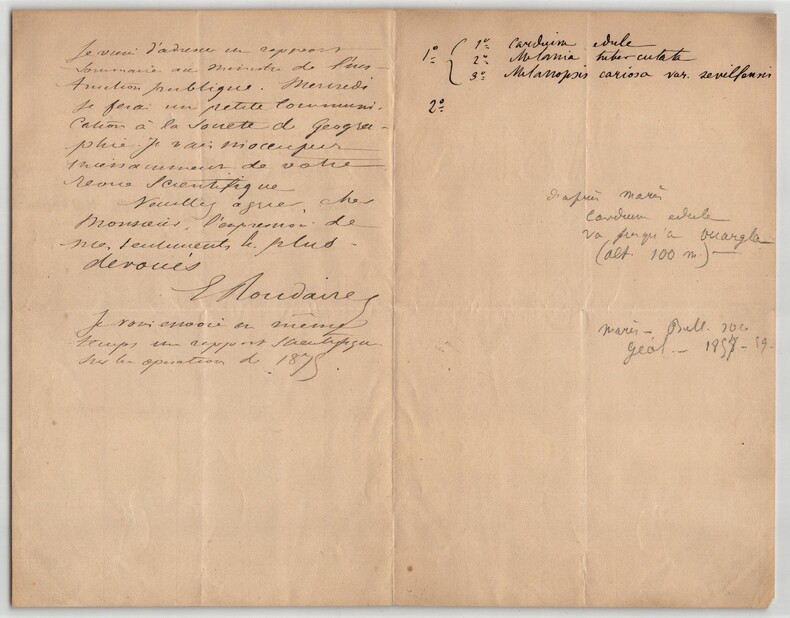 Je viens d'adresser un rapport
sommaire au ministre de l'ins-
truction publique. Mercredi
je ferai une petite communi-
cation à la Societe de Geogra-
phie. Je vais m'occuper
incessamment de votre
revue Scientifique
Veuillez agréer, cher
Monsieur, l'expression de
mes sentiments les plus
devoués
E Roudaire
Je vous envoie en même
temps un rapport scientifique
sur les operations de 1875.
1º { 1º Cardium edule
2º Melania tuberculata
3º Melanopsis cariosa var. sevillensis
2º
d'après marès
cardium edule
va jusqu'à ouargla
(alt. 100 m.) —
marès — Bull. soc.
Géol. — 1857 - 59.